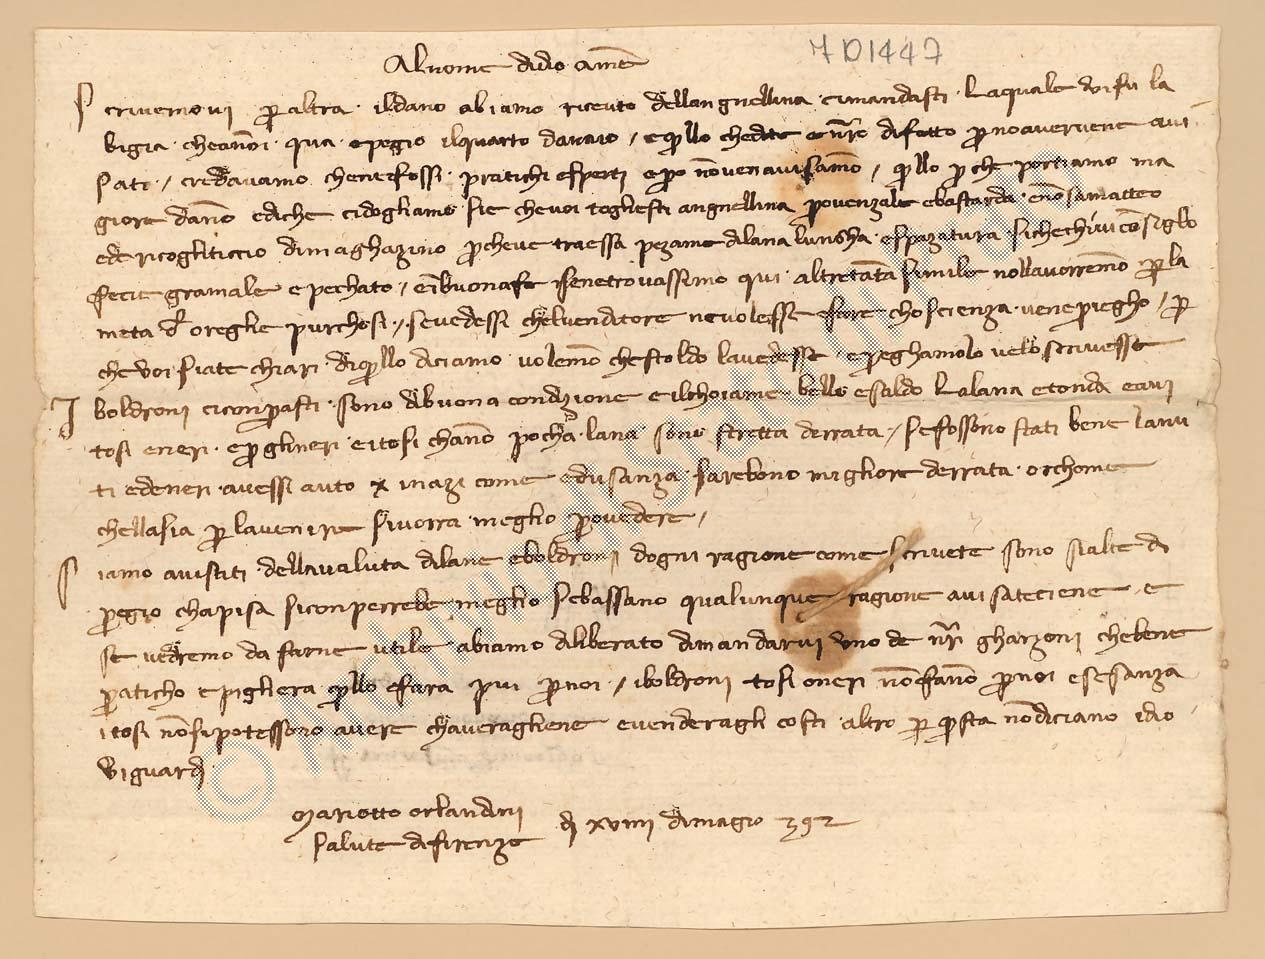 7 D 1447
Al nome didio amē
S crivemovi p altra · ildano abiamo ricevto dellangnellina · cimandasti · laquale doi fu la
bigia · cheanoi · qua · epegio ilquarto danaio / eqllo chedite e nr̄o difetto p noavervene avi
sati / credavamo chenefossi · pratichi esperti epo nō venavisamo / qllo p che portiamo ma
giore danō ediche cidogliamo sie chevoi togliesti angnellina provenzale ebastarda · enō samatteo
ede ricogliticcio dimaghazino p cheve traessa pezame dilana lunga · espazatura sichechi vi cōsiglo
fecie gramale epechato / eibuonafe senetrovassimo qui · altretāta simile nollavorremo p la
meta d oreglie purchosi / sevedessi chelvenditore nevolesse fare choscienza · vene priegho / p
che voi siate chiari diqllo diciamo volemo chestoldo lavedesse · epreghamolo velo scrivesse
I boldroni ciconprasti · sono dibuona condizione eilchoiame bello esaldo lalana etonda eavi
tosi eneri · epo glineri eitosi chano pocha · lana sono stretta derrata / sefossono stati bene lavu
ti edeneri avessi auto x inazi come edusanza sarebono migliore derrata · orchome
chellasia p lavenire sivorra meglio provedere /
S iamo avisati dellavaluta dilane eboldroni dogni ragione come scrivete sono sialte di
pregio chapisa siconperrebe meglio sebassano qualunque ragione avisateciene · e
se vedremo da farne utile · abiamo diliberato dimandarvi uno de nr̄i gharzoni chebene
praticho epigliera qllo fara pui p noi / iboldroni tosi oneri nō fano p noi esesanza
itosi nō sipotessono avere chaveragliene evenderagli costi altro p qsta nō diciano idio
viguardi
Mariotto orlandini
salute difirenze
dì xviiii dimagio 392